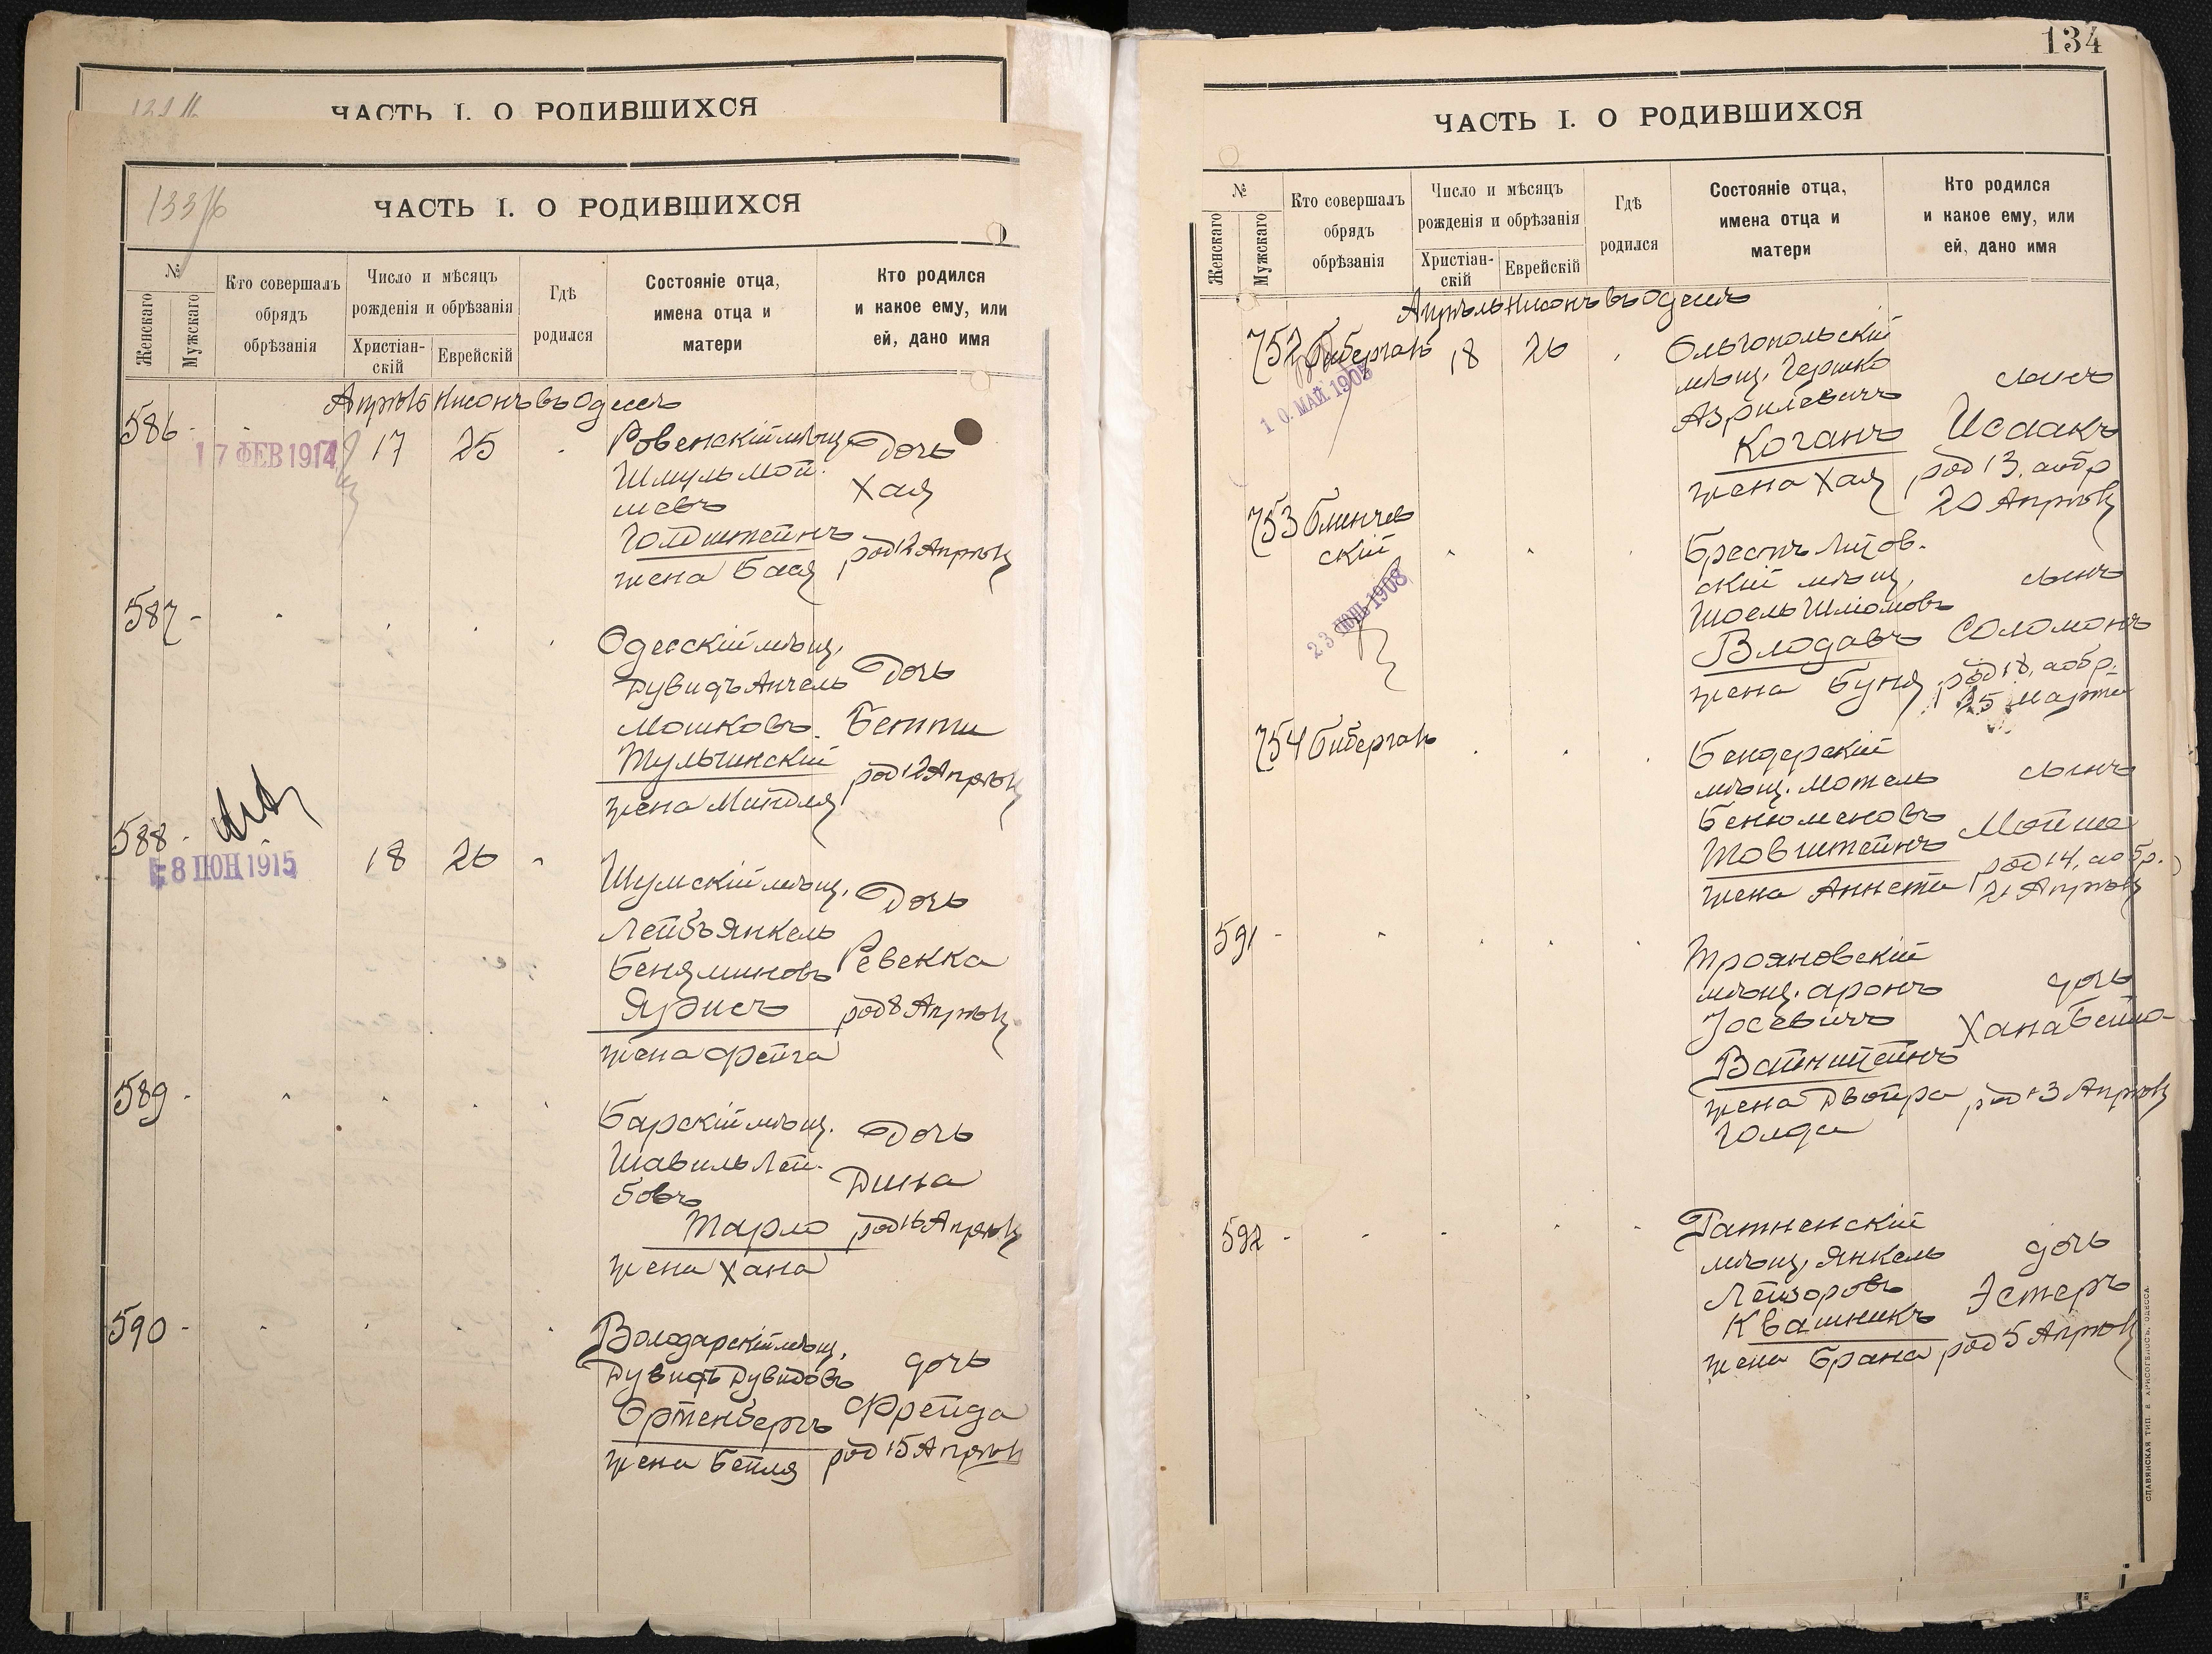 ЧАСТЬ I. О РОДИВШИХСЯ
133/б
ЧАСТЬ I. О РОДИВШИХСЯ
№
Женскаго
Мужскаго
Кто совершалъ
обрядъ
обрѣзанія
Число и мѣсяцъ
рожденія и обрѣзанія
Христіан-
скій
Еврейскій
Гдѣ
родился
Состояніе отца,
имена отца и
матери
Кто родился
и какое ему, или
ей, дано имя
Апрѣль Нисонъ въ Одессѣ
586 -
17 ФЕВ 1914
17 25
Ровенскій мѣщ.
Шмуль Мой-
шевъ
Голдштейнъ
жена Бася
Дочь
Хая
род 12 Апрѣля
587 -
Одесскій мѣщ.
Дувидъ Анчель
Мошковъ
Тульчинскій
жена Миндля
Дочь
Бетти
род 12 Апрѣля
588 -
8 1915
18 26
Шумскій мѣщ.
Лейбъ Янкель
Беняминовъ
жена Фейга
Дочь
Ревекка
род 8 Апрѣля
589 -
Барскій мѣщ.
Шавиль Лей-
бовъ
Тарло
жена Хана
Дочь
Дина
род 16 Апрѣля
590 -
Володарскій мѣщ.
Дувидъ Дувидовъ
Ортенбергъ
жена Бейля
дочь
Фрейда
род 15 Апрѣля
134
ЧАСТЬ I. О РОДИВШИХСЯ
№
Женскаго
Мужскаго
Кто совершалъ
обрядъ
обрѣзанія
Число и мѣсяцъ
рожденія и обрѣзанія
Христіан-
скій
Еврейскій
Гдѣ
родился
Состояніе отца,
имена отца и
матери
Кто родился
и какое ему, или
ей, дано имя
Апрѣль Нисонъ въ Одессѣ
752 Бибергалъ
10. МАЙ. 1908
18 26
Ольгопольскій
мѣщ. Гершко
Азрилевичъ
Коганъ
жена Хая
сынъ
Исаакъ
род 13, а обр
20 Апрѣля
753 Блинчев
скій
23 1908
Брестъ Литов-
скій мѣщ,
Шоель Шлiомовъ
Влодавъ
жена Буня
сынъ
Соломонъ
род 18, а обр.
25 Марта
754 Бибергалъ
Бендерскій
мѣщ. Мотель
Бенюменовъ
Товштейнъ
жена Аннета
сынъ
Мойше
род 14, а обр.
21 Апрѣля
591 -
Трояновскій
мѣщ. Аронъ
Іосевичъ
Вайнштейнъ
жена Двойра
Голда
дочь
Хана Бейла
род 13 Апрѣля
592 -
Ратненскій
мѣщ, Янкель
Лейзоровъ
Квашникъ
жена Брана
дочь
Эстеръ
род 5 Апрѣля
СЛАВЯНСКАЯ ТИП. Е ХРИСОГЕЛОСЪ, ОДЕССА